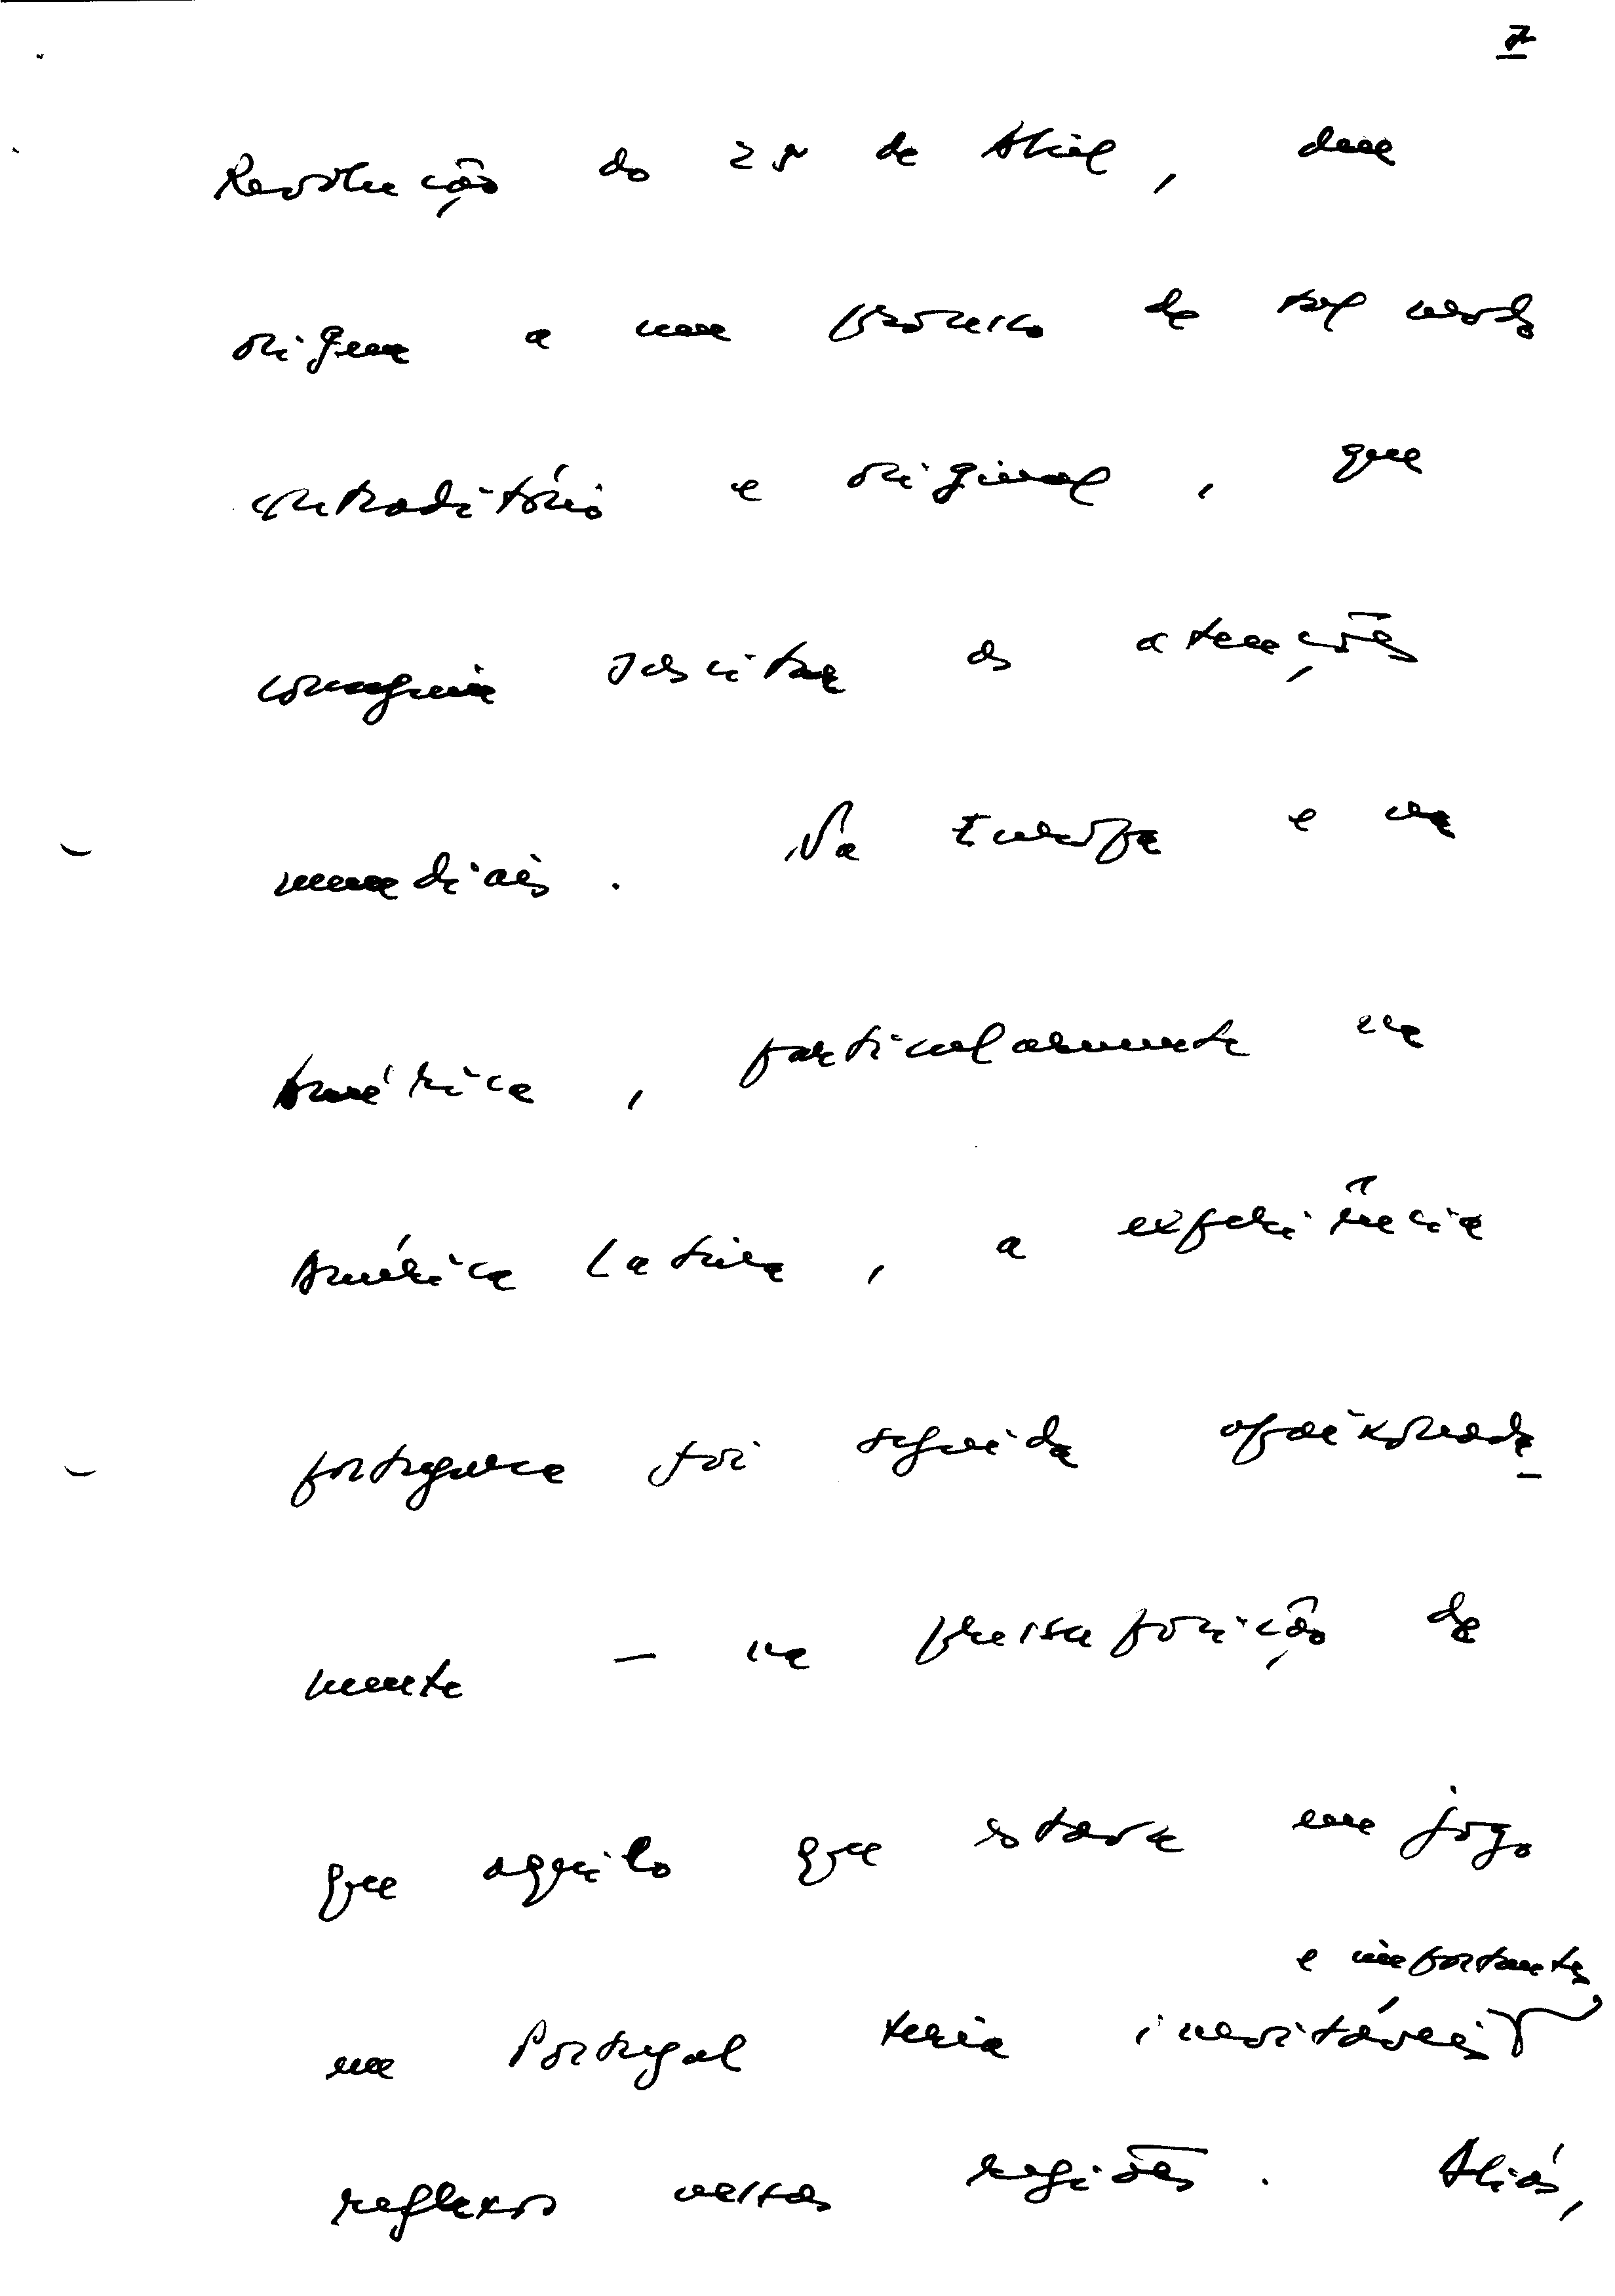 7
Revolução do 25 de Abril, deu
origem a um processo de tal modo
contraditório e original, que
conseguiu suscitar as atenções
mundiais. Na Europa e na
América, particularmente na
América Latina, a experiência
portuguesa foi seguida apaixonada-
mente — na pressuposição de
que aquilo que estava em jogo
e importantes
em Portugal teria inevitáveis
reflexos nestas regiões. Aliás,